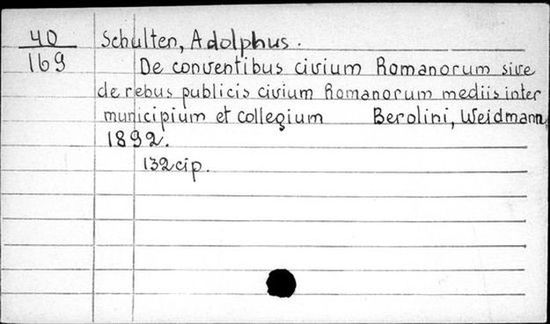 40 Schulten, Adolphus.
169 De conventibus civium Romanorum sive
de rebus publicis civium Romanorum mediis inter
municipium et collegium Berolini, Weidmann,
1892.
132 cip.